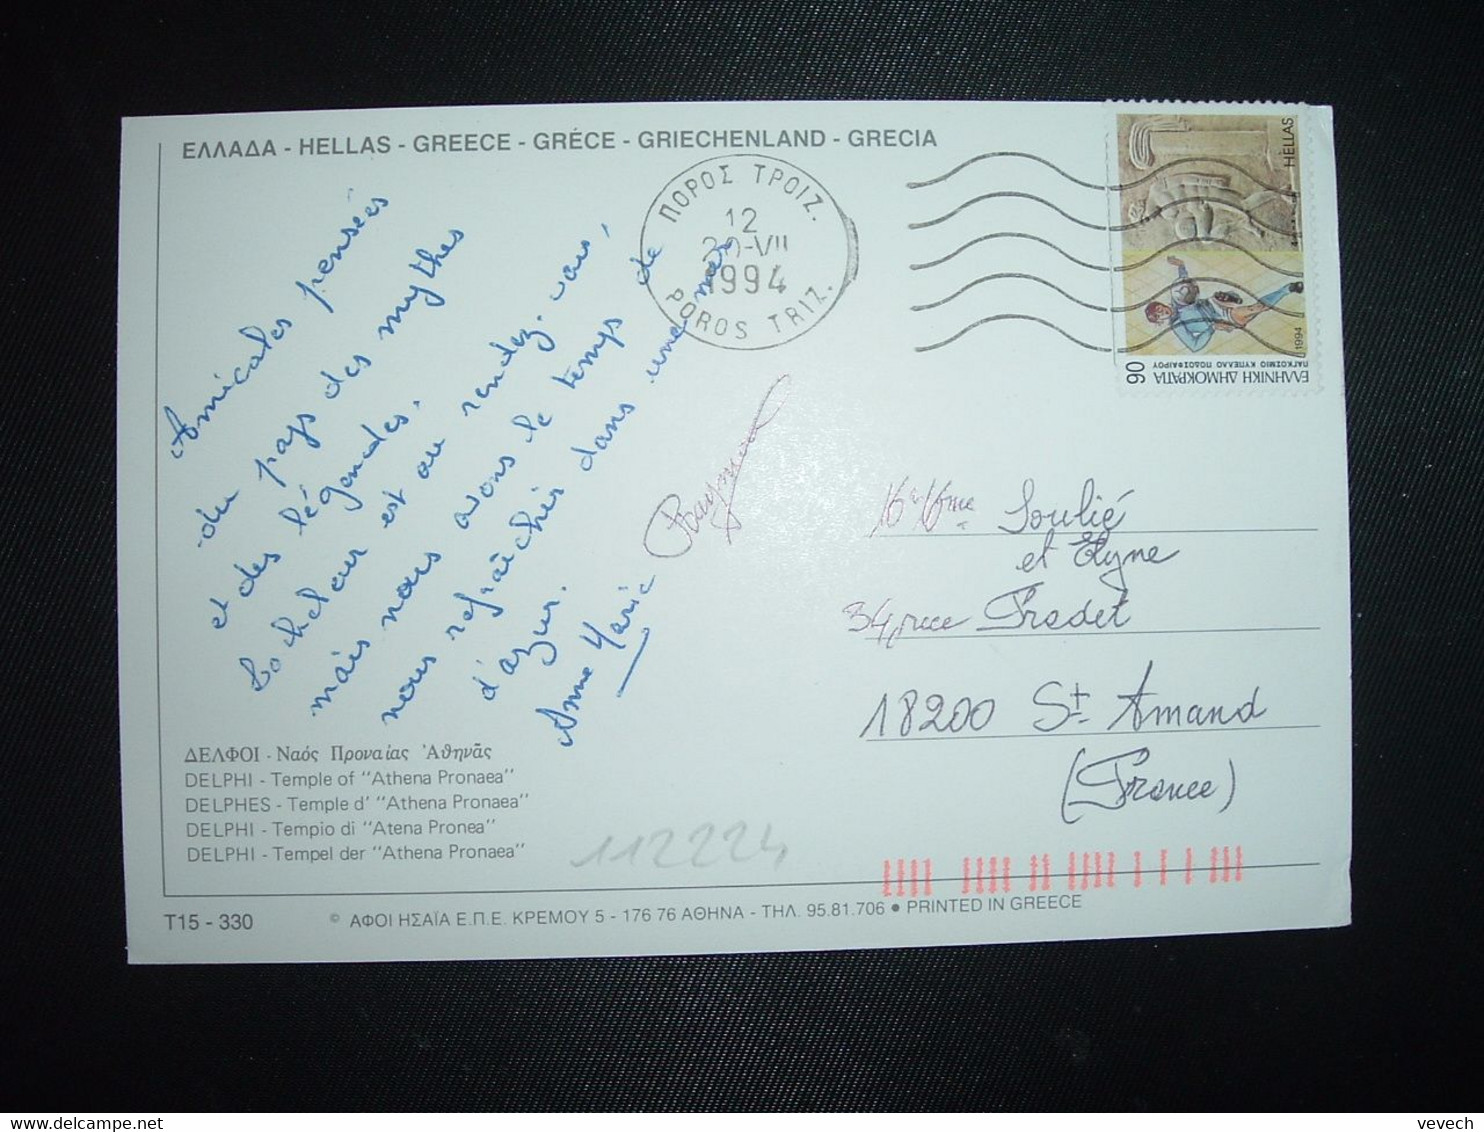 ΕΛΛΑΔΑ - HELLAS - GREECE - GRÉCE - GRIECHENLAND - GRECIA
Amicales pensées
du pays des mythes
et des légendes.
La chaleur est au rendez-vous,
mais nous avons le temps de
nous refraîchir dans une mer
d'azur.
Anne Marie
Raymond
ΠΟΡΟΣ ΤΡΟΙΖ.
12
20-VII
1994
POROS TRIZ.
HELLAS
1994
90
ΕΛΛΗΝΙΚΗ ΔΗΜΟΚΡΑΤΙΑ
ΠΑΓΚΟΣΜΙΟ ΚΥΠΕΛΛΟ ΠΟΔΟΣΦΑΙΡΟΥ
Soulié
et Elyne
34, rue Fradet
18200 St Amand
(France)
ΔΕΛΦΟΙ - Ναός Προναίας Ἀθηνᾶς
DELPHI - Temple of "Athena Pronaea"
DELPHES - Temple d' "Athena Pronaea"
DELPHI - Tempio di "Atena Pronea"
DELPHI - Tempel der "Athena Pronaea"
112224
T15 - 330
© ΑΦΟΙ ΗΣΑΪΑ Ε.Π.Ε. ΚΡΕΜΟΥ 5 - 176 76 ΑΘΗΝΑ - ΤΗΛ. 95.81.706 • PRINTED IN GREECE
delcampe.net
vevech